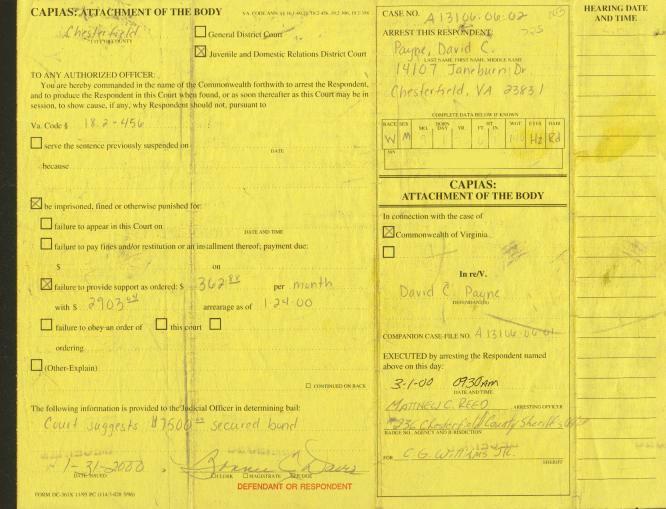 CAPIAS: ATTACHMENT OF THE BODY
VA. CODE ANN.
Chesterfield
CITY OR COUNTY
General District Court
☒ Juvenile and Domestic Relations District Court
TO ANY AUTHORIZED OFFICER:
You are hereby commanded in the name of the Commonwealth forthwith to arrest the Respondent,
and to produce the Respondent in this Court when found, or as soon thereafter as this Court may be in
session, to show cause, if any, why Respondent should not, pursuant to
Va. Code § 18.2-456
serve the sentence previously suspended on
DATE
because
☒ be imprisoned, fined or otherwise punished for:
failure to appear in this Court on
DATE AND TIME
failure to pay fines and/or restitution or an installment thereof; payment due:
$ on
☒ failure to provide support as ordered: $ 362 per month
with $ 2903 arrearage as of 1-24-00
failure to obey an order of this court
ordering
(Other-Explain)
CONTINUED ON BACK
The following information is provided to the Judicial Officer in determining bail:
Court suggests $7500 secured bond
1-31-2000
DATE ISSUED
Bonnie C. Davis
CLERK MAGISTRATE
DEFENDANT OR RESPONDENT
FORM DC-361X 11/95 PC
CASE NO. A13106-06-02
ARREST THIS RESPONDENT:
Payne, David C.
LAST NAME, FIRST NAME, MIDDLE NAME
14107 Janeburn Dr
Chesterfield, VA 23831
COMPLETE DATA BELOW IF KNOWN
RACE SEX BORN MO. DAY YR. HT. FT. IN. WGT. EYES HAIR
W M Hz Rd
SSN
CAPIAS:
ATTACHMENT OF THE BODY
In connection with the case of
☒ Commonwealth of Virginia
In re/V.
David C. Payne
DEFENDANT(S)
COMPANION CASE-FILE NO. A13106-06-01
EXECUTED by arresting the Respondent named
above on this day:
3-1-00 0930 AM
DATE AND TIME
Matthew C. Reed ARRESTING OFFICER
236 Chesterfield County Sheriff's
BADGE NO., AGENCY AND JURISDICTION
FOR C.G. Williams Jr.
SHERIFF
HEARING DATE
AND TIME